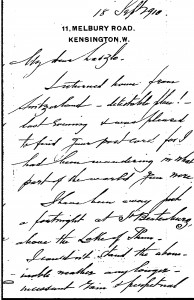 18 Sept 1910.
11, MELBURY ROAD,
KENSINGTON, W.
My dear Laszlo.
I returned home from
Switzerland — delectable place!
last Evening & was pleased
to find your post card for I
had been wondering in what
part of the world you were
I have been away just
a fortnight at St Beatenberg
above the Lake of Thun,
I could not stand the abom-
inable weather any longer —
incessant rain & perpetual